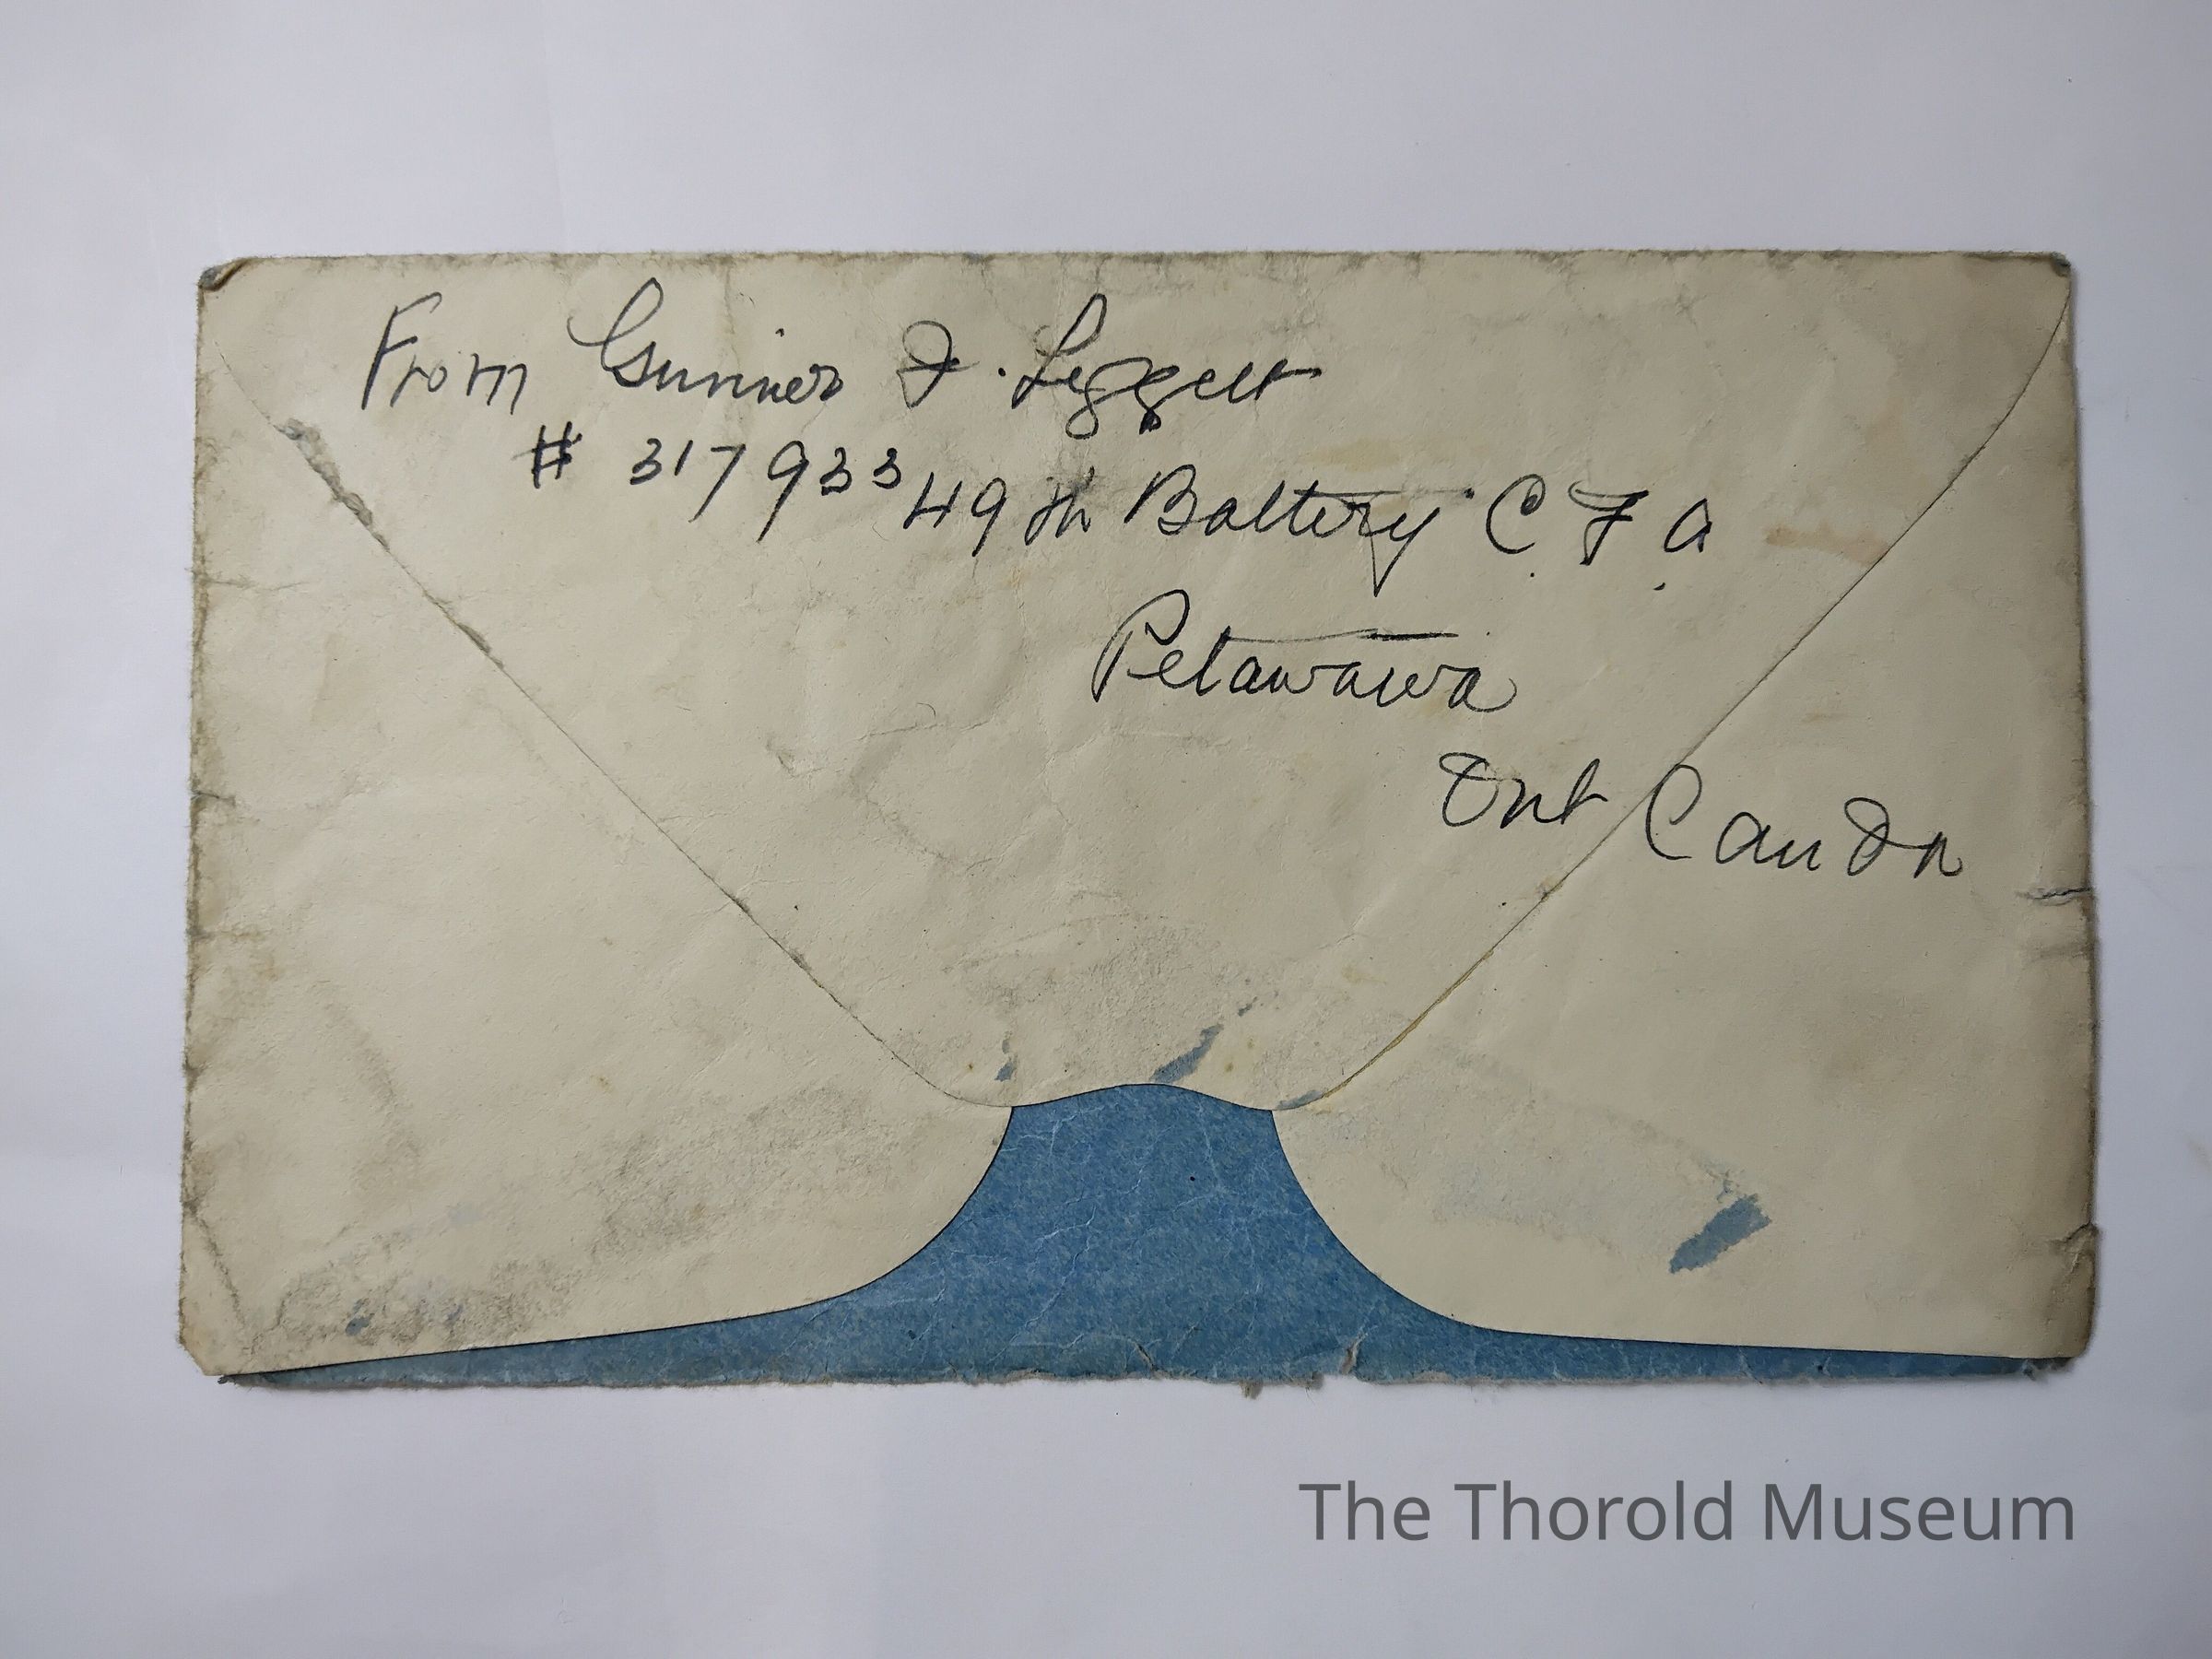 From Gunner F. Leggett
# 317933 49th Battery C.F.A.
Petawawa
Ont Canda
The Thorold Museum